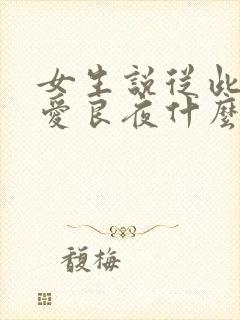 女生說從此
愛良夜什麼
馥梅